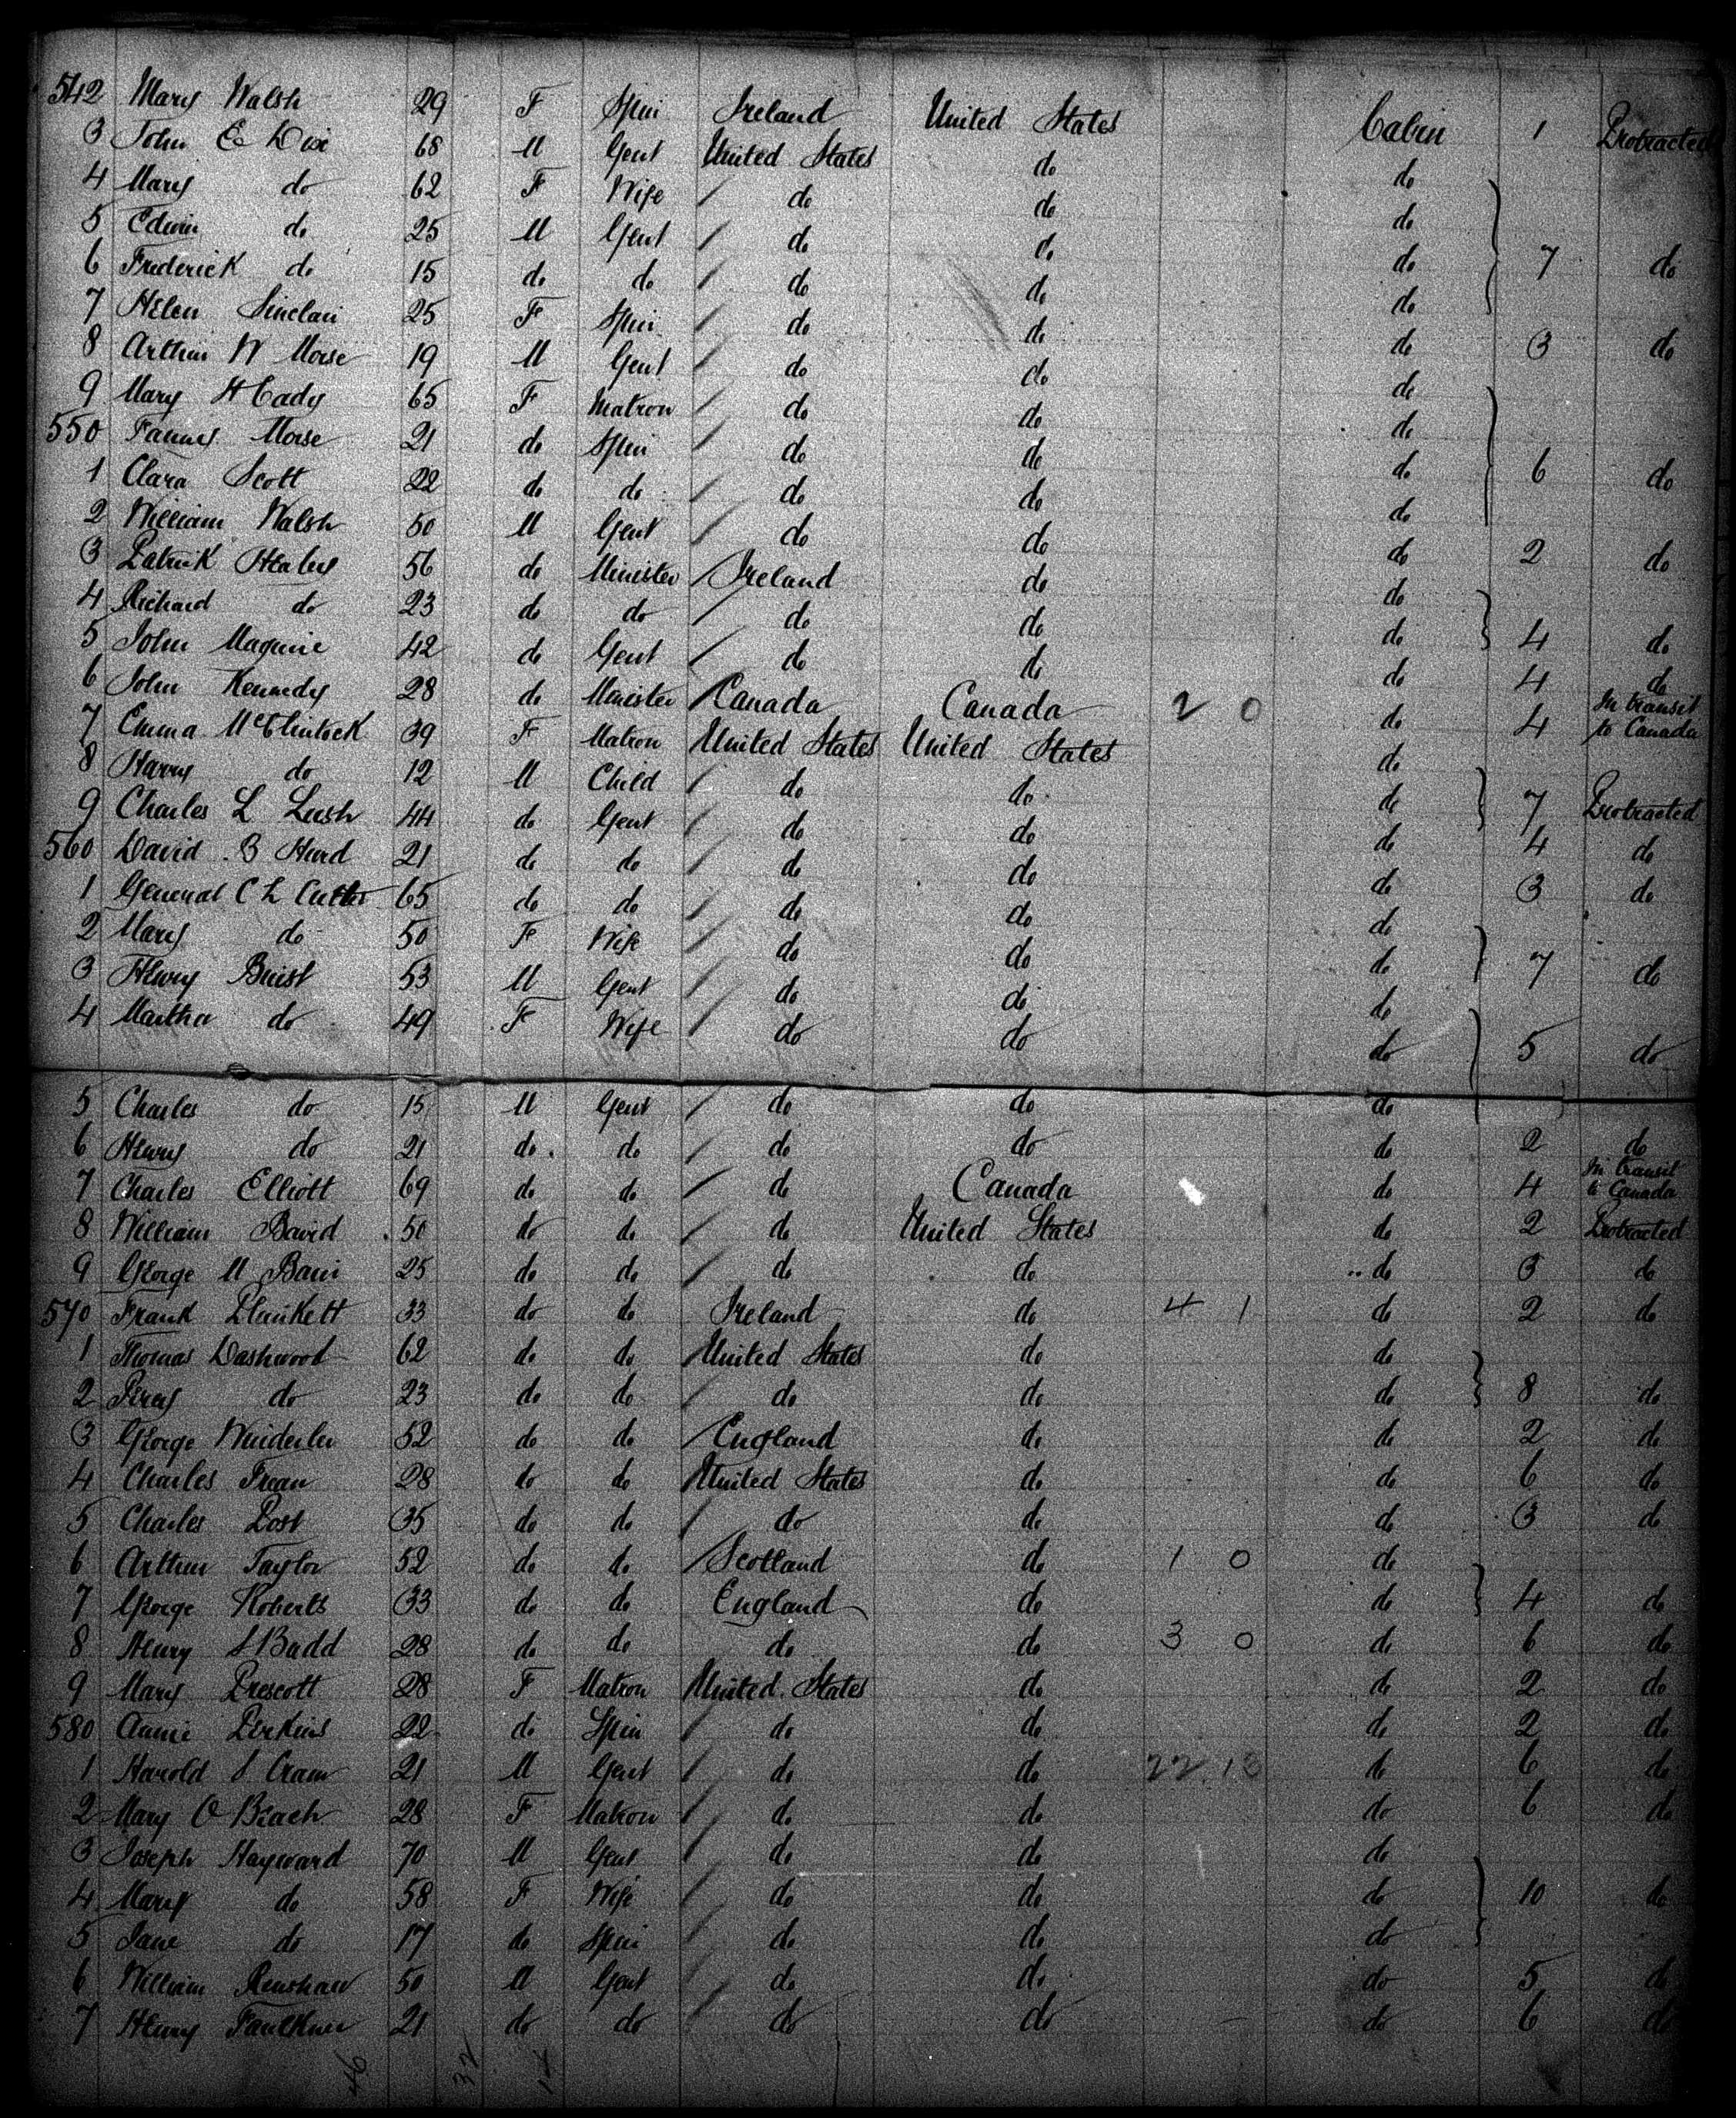 542 Mary Walsh 29 F Spin Ireland United States Cabin 1 Protracted
3 John E Dix 68 M Gent United States do do
4 Mary do 62 F Wife do do do 7 do
5 Edwin do 25 M Gent do do do
6 Frederick do 15 do do do do do
7 Helen Sinclair 25 F Spin do do do 3 do
8 Arthur W Morse 19 M Gent do do do
9 Mary H Cady 65 F Matron do do do 6 do
550 Fanny Morse 21 do Spin do do do
1 Clara Scott 22 do do do do do
2 William Walsh 50 M Gent do do do 2 do
3 Patrick Healy 56 do Minister Ireland do do
4 Richard do 23 do do do do do 4 do
5 John Maguire 42 do Gent do do do 4 do
6 John Kennedy 28 do Minister Canada Canada 2 0 do 4 In transit to Canada
7 Emma McClintock 39 F Matron United States United States do
8 Harry do 12 M Child do do do 7 Protracted
9 Charles L Lush 44 do Gent do do do 4 do
560 David B Hurd 21 do do do do do 3 do
1 General C L 65 do do do do do
2 Mary do 50 F Wife do do do 7 do
3 Henry Buist 53 M Gent do do do
4 Martha do 49 F Wife do do do 5 do
5 Charles do 15 M Gent do do do
6 Henry do 21 do do do do do 2 do
7 Charles Elliott 69 do do do Canada do 4 In transit to Canada
8 William Baird 50 do do do United States do 2 Protracted
9 George M 25 do do do do do 3 do
570 Frank Plunkett 33 do do Ireland do 4 1 do 2 do
1 Thomas Dashwood 62 do do United States do do
2 Percy do 23 do do do do do 8 do
3 George 52 do do England do do 2 do
4 Charles 28 do do United States do do 6 do
5 Charles Post 35 do do do do do 3 do
6 Arthur Taylor 52 do do Scotland do 1 0 do
7 George Roberts 33 do do England do do 4 do
8 Henry S Budd 28 do do do do 3 0 do 6 do
9 Mary Prescott 28 F Matron United States do do 2 do
580 Annie Perkins 22 do Spin do do do 2 do
1 Harold S Cram 21 M Gent do do 22 do 6 do
2 Mary O Beach 28 F Matron do do do 6 do
3 Joseph Hayward 70 M Gent do do do
4 Mary do 58 F Wife do do do 10 do
5 Jane do 17 do Spin do do do
6 William Renshaw 50 M Gent do do do 5 do
7 Henry Faulkner 21 do do do do do 6 do
46 32 14